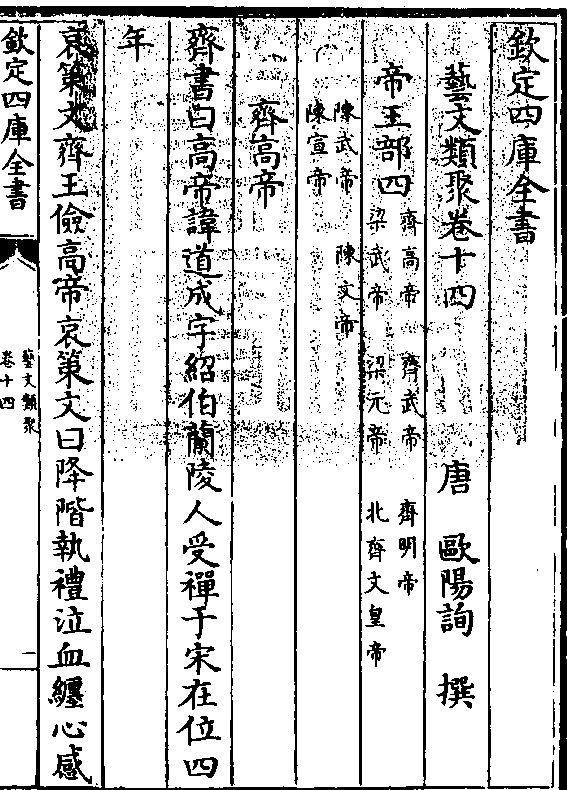 欽定四庫全書
藝文類聚卷十四　唐　歐陽詢　撰
帝王部四
齊高帝　齊武帝　齊明帝
梁武帝　梁元帝　北齊文皇帝
陳武帝　陳文帝
陳宣帝
齊高帝
齊書曰高帝諱道成字紹伯蘭陵人受禪于宋在位四
年
哀策文齊王儉高帝哀策文曰降階執禮泣血纏心感
欽定四庫全書
藝文類聚
卷十四
一